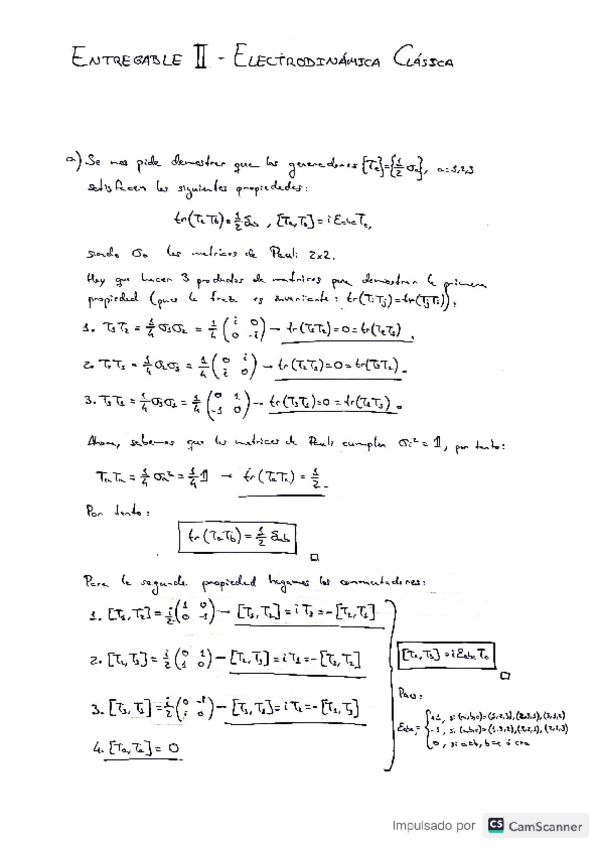 ENTREGABLE II - ELECTRODINÁMICA CLÁSICA
a) Se nos pide demostrar que los generadores {Ta}={1/2 σa}, a=1,2,3
satisfacen las siguientes propiedades:
tr(TaTb)=1/2 δab, [Ta,Tb]=iεabcTc,
siendo σa las matrices de Pauli 2x2.
Hay que hacer 3 productos de matrices para demostrar la primera
propiedad (pues la traza es invariante: tr(TiTj)=tr(TjTi)).
1. T1T2 = 1/4 σ1σ2 = 1/4 (i 0; 0 -i) → tr(T1T2)=0=tr(T2T1).
2. T2T3 = 1/4 σ2σ3 = 1/4 (0 i; i 0) → tr(T2T3)=0=tr(T3T2).
3. T3T1 = 1/4 σ3σ1 = 1/4 (0 1; -1 0) → tr(T3T1)=0=tr(T1T3).
Ahora, sabemos que las matrices de Pauli cumplen σi²=𝟙, por tanto:
TaTa = 1/4 σa² = 1/4 𝟙 → tr(TaTa) = 1/2.
Por tanto:
tr(TaTb)=1/2 δab
□
Para la segunda propiedad hagamos los conmutadores:
1. [T1,T2]=i/2 (1 0; 0 -1) → [T1,T2]=iT3=-[T2,T1]
2. [T2,T3]=i/2 (0 1; 1 0) → [T2,T3]=iT1=-[T3,T2]
3. [T3,T1]=i/2 (0 -i; i 0) → [T3,T1]=iT2=-[T1,T3]
4. [Ta,Ta]=0
[Ta,Tb]=iεabcTc
□
Pues:
εabc={+1, si (a,b,c)=(1,2,3),(2,3,1),(3,1,2)
-1, si (a,b,c)=(1,3,2),(3,2,1),(2,1,3)
0, si a=b, b=c ó c=a
Impulsado por CS CamScanner